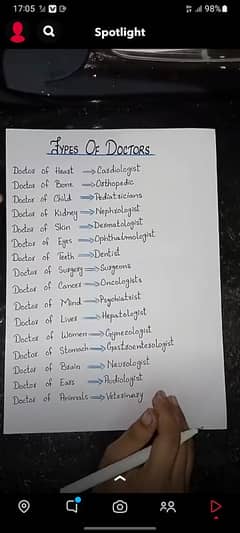 17:05
98%
Spotlight
TYPES OF DOCTORS
Doctor of Heart → Cardiologist
Doctor of Bone → Orthopedic
Doctor of Child → Pediatricians
Doctor of Kidney → Nephrologist
Doctor of Skin → Dermatologist
Doctor of Eyes → Ophthalmologist
Doctor of Teeth → Dentist
Doctor of Surgery → Surgeons
Doctor of Cancer → Oncologists
Doctor of Mind → Psychiatrist
Doctor of Liver → Hepatologist
Doctor of Women → Gynecologist
Doctor of Stomach → Gastroenterologist
Doctor of Brain → Neurologist
Doctor of Ears → Audiologist
Doctor of Animals → Veterinary